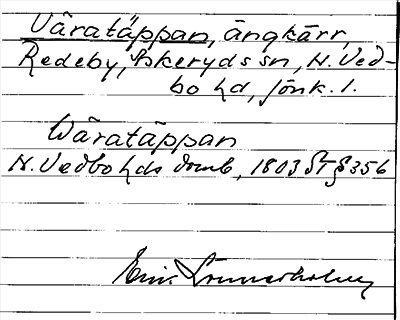 Våratäppan, ängkärr,
Redeby, Askeryds sn, N. Ved-
bo hd, Jönk. l.
Wåratäppan
N. Vedbo hds domb, 1803 ST § 356